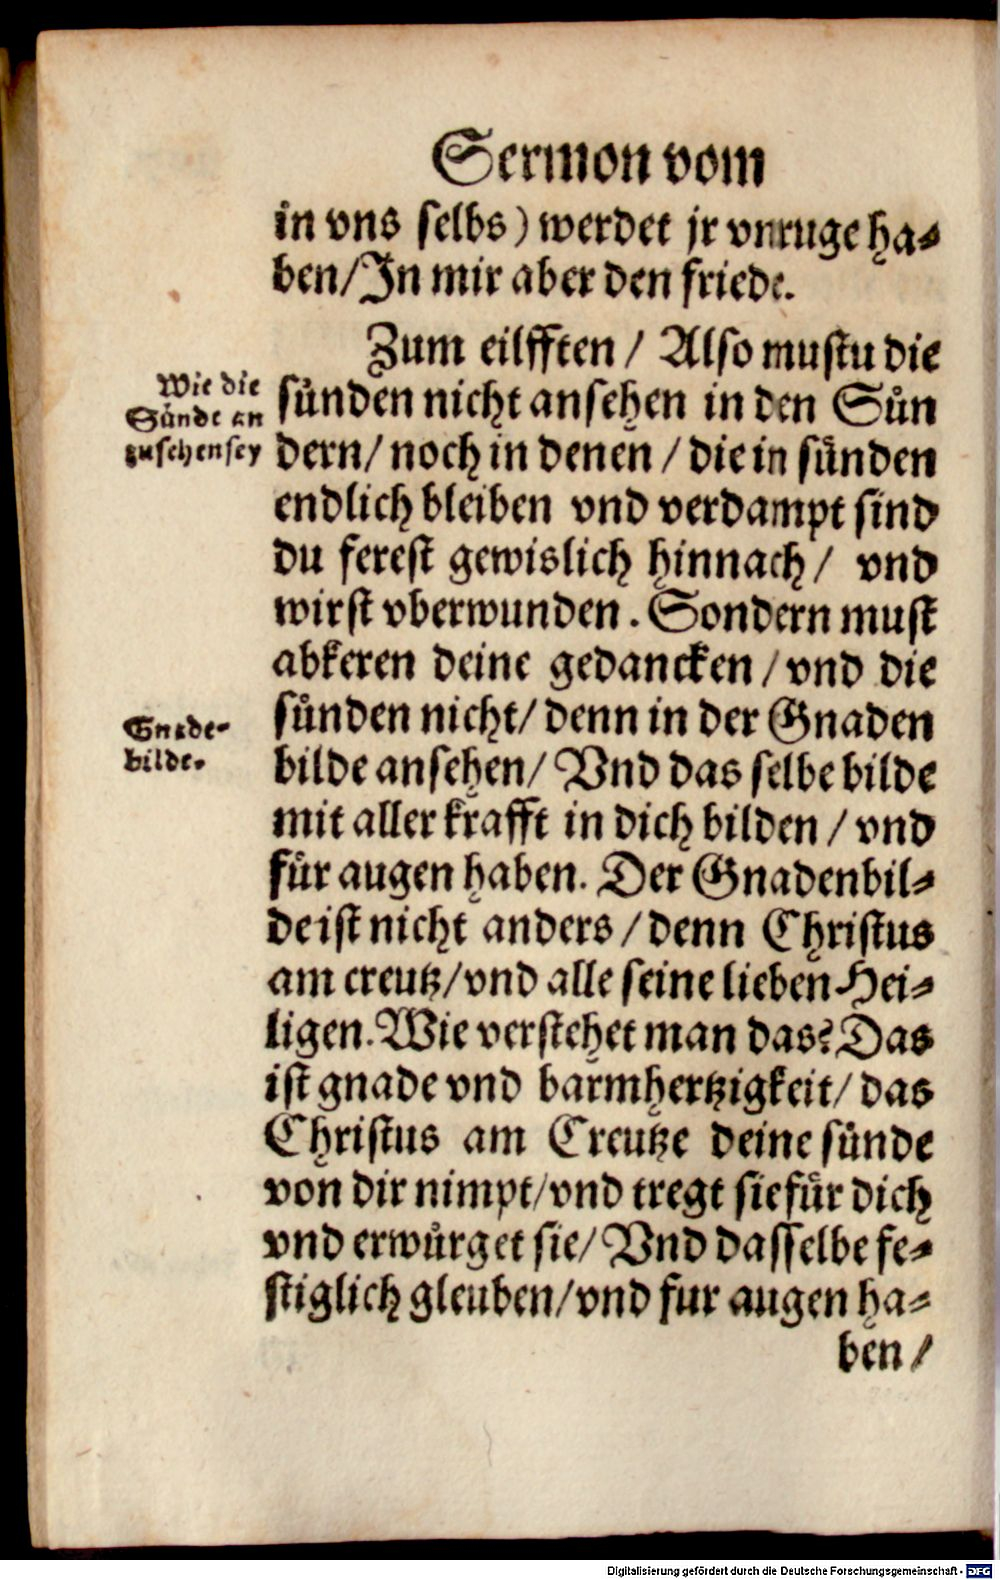 Sermon vom
in vns selbs) werdet jr vnruge ha-
ben/ In mir aber den friede.
Zum eilfften / Also mustu die
Wie die
Sünde an
zusehen sey
sünden nicht ansehen in den Sün
dern/ noch in denen / die in sünden
endlich bleiben vnd verdampt sind
du ferest gewislich hinnach/ vnd
wirst vberwunden. Sondern must
abkeren deine gedancken / vnd die
Gnade-
bilde.
sünden nicht/ denn in der Gnaden
bilde ansehen/ Vnd das selbe bilde
mit aller krafft in dich bilden / vnd
für augen haben. Der Gnadenbil-
de ist nicht anders / denn Christus
am creutz/ vnd alle seine lieben Hei-
ligen. Wie verstehet man das? Das
ist gnade vnd barmhertzigkeit/ das
Christus am Creutze deine sünde
von dir nimpt/ vnd tregt sie für dich
vnd erwürget sie/ Vnd dasselbe fe-
stiglich gleuben/ vnd fur augen ha-
ben /
Digitalisierung gefördert durch die Deutsche Forschungsgemeinschaft - DFG